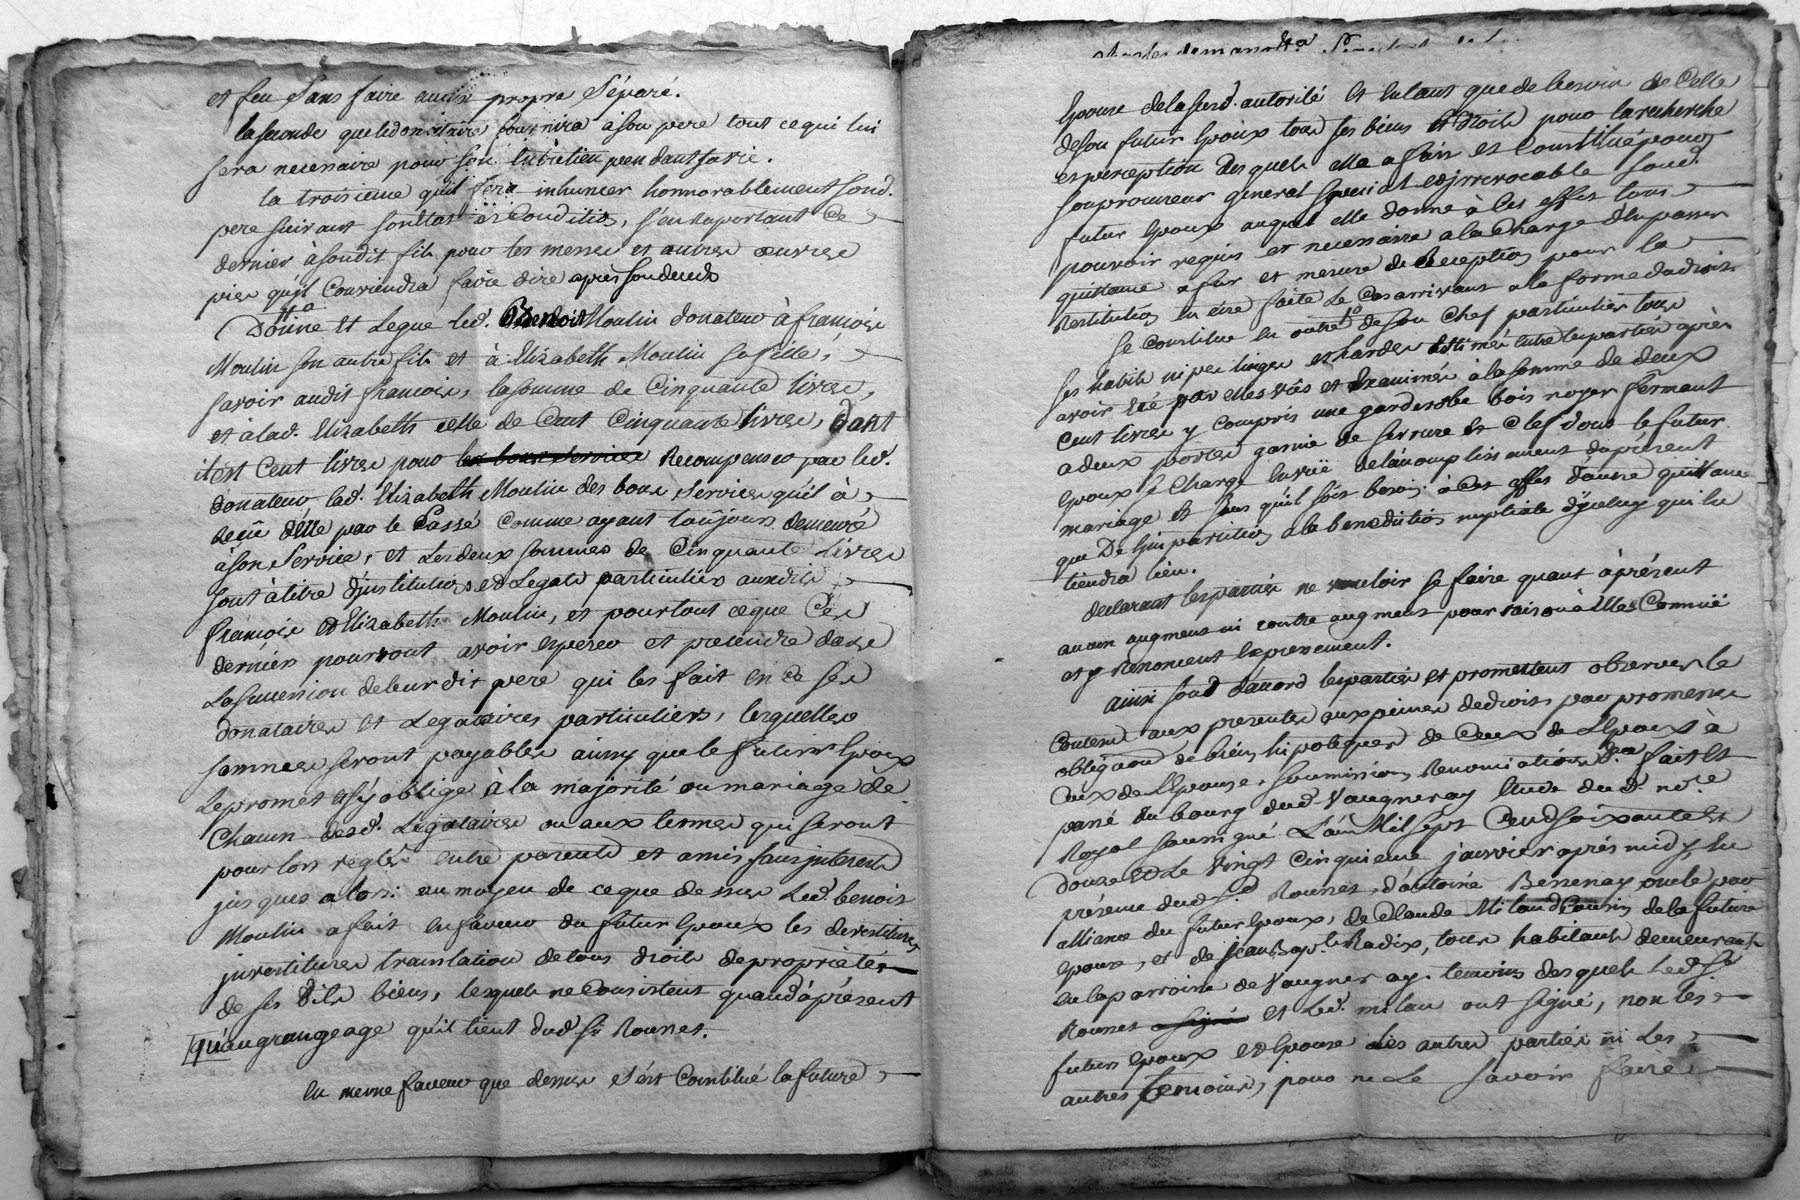 et feu sans faire aucun propre séparé.
la seconde que led donataire fournira à son pere tout ce qui lui
sera necessaire pour son entretien pendant sa vie.
la troisieme qu'il fera inhumer honnorablement sond.
pere suivant son état et condition, s'en raportant ce
dernier à sondit fils pour les messes et autres œuvres
pies qu'jl conviendra faire dire apres son deceds
Donne et Legue led. Benoit Moulin donateur à francois
Moulin son autre fils et à Elizabeth Moulin sa fille,
savoir audit francois, la somme de cinquante livres,
et à lad. Elizabeth celle de cent cinquante livres, dont
il est cent livres pour les bons services recompenser par led.
donateur lad. Elizabeth Moulin des bons services qu'il à
recûe d'elle par le passé comme ayant toujours demeuré
à son service, et les deux sommes de cinquante livres
sont à titre d'jnstitution et Legats particuliers auxdits
francois et Elizabeth Moulin, et pour tout ce que ces
derniers pourront avoir esperer et pretendre dans
la succession de leur dit pere qui les fait en ce ses
donataires et Legataires particuliers, lesquelles
sommes seront payables ainsy que le futur Epoux
le promet et s'y oblige à la majorité ou mariage de
chacun desd. Legataires ou aux termes qui seront
pour lors reglés entre parents et amis sans jnterest
jusques alors: au moyen de ce que dessus led. benoit
Moulin a fait en faveur du futur Epoux les devestitures
jnvestitures translation de tous droits de propriété
de ses dits biens, lesquels ne consistent quand à présent
qu'au grangeage qu'il tient dud. Sr. Rounes.
En meme faveur que dessus s'est constitué la future
Epouse de la susd. autorité et en tant que de besoin de celle
de son futur Epoux tous ses biens et droits pour la recherche
et perception desquels elle a fait et constitué pour
son procureur general special et jrrevocable sond.
futur Epoux auquel elle donne à ces effets tous
pouvoir requis et necessaire à la charge d'en passer
quittance a fur et mesure de reception pour la
restitution en etre faite le cas arrivant a la forme du droit
se constitue en outre de son chef particulier tous
ses habits nipes linges et hardes estimés entre les parties après
avoir été par elles vûs et examinés à la somme de deux
cent livres y compris une garderobe bois noyer fermant
a deux portes garnie de serrure et clef dont le futur
Epoux se charge en vuë de l'accomplissement du présent
mariage et sans qu'il soit besoin à ces effets d'autre quittance
que De la benediction nuptiale d'jceluy qui en
tiendra lieu.
declarant les parties ne vouloir se faire quant à présent
aucun augment ni contre augment pour raison à Elles connuë
et y renoncent Expressement.
ainsi sont d'accord les parties et promettent observer le
contenu aux presentes aux peines de droit par promesse
obligaon de biens, hipotequer de ceux de L'Epoux à
ceux de L'Epouse, soumissions, renonciations &a. fait et
passé au bourg dud. Vaugneray Etude dud. nore.
Royal soussigné L'an Mil sept Cend soixante et
douze et le vingt cinquieme janvier après midy, en
présence dud. Sr. Rounes, d'antoine Bessenay oncle par
alliance du futur Epoux, de Claude Milan Cousin de la future
Epouse, et de Jean Bapte. Radix, tous habitants demeurants
en la parroisse de Vaugneray. temoins desquels led. Sr.
Rounes a signé et led. milan ont signé, non les
futurs Epoux et Epouse les autres parties ni les
autres temoins, pour ne le savoir faire